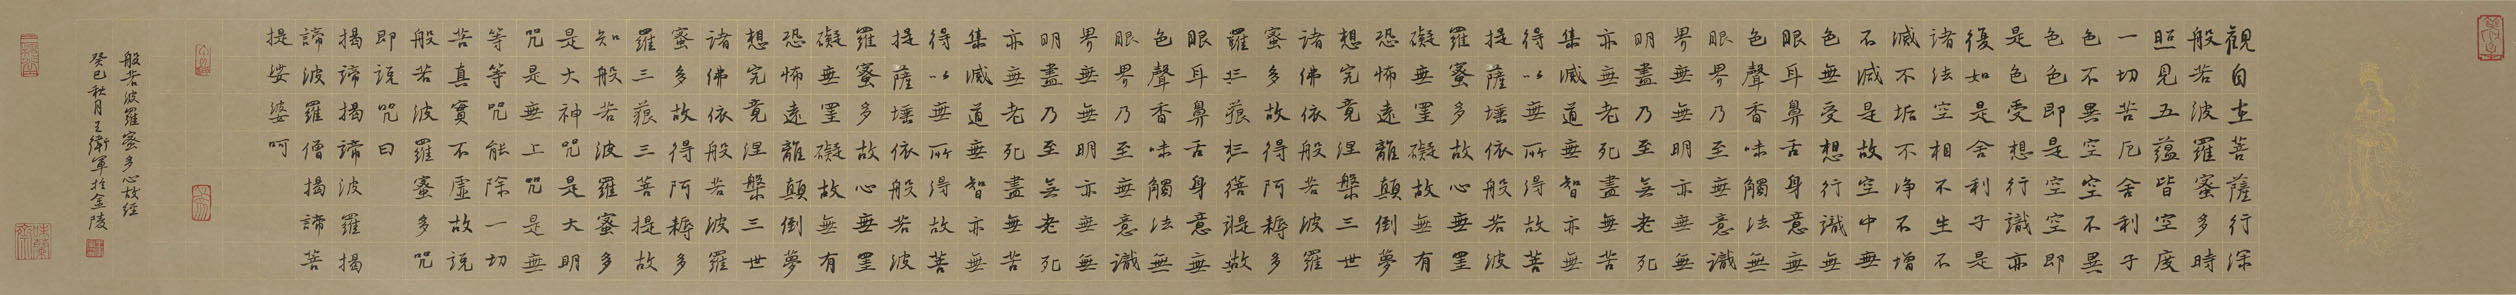 觀自在菩薩行深
般若波羅蜜多時
照見五蘊皆空度
一切苦厄舍利子
色不異空空不異
色色即是空空即
是色受想行識亦
復如是舍利子是
諸法空相不生不
滅不垢不净不增
不滅是故空中無
色無受想行識無
眼耳鼻舌身意無
色聲香味觸法無
眼界乃至無意識
界無無明亦無無
明盡乃至無老死
亦無老死盡無苦
集滅道無智亦無
得以無所得故菩
提薩埵依般若波
羅蜜多故心無罣
礙無罣礙故無有
恐怖遠離顛倒夢
想究竟涅槃三世
諸佛依般若波羅
蜜多故得阿耨多
羅三藐三菩提故
眼耳鼻舌身意無
色聲香味觸法無
眼界乃至無意識
界無無明亦無無
明盡乃至無老死
亦無老死盡無苦
集滅道無智亦無
得以無所得故菩
提薩埵依般若波
羅蜜多故心無罣
礙無罣礙故無有
恐怖遠離顛倒夢
想究竟涅槃三世
諸佛依般若波羅
蜜多故得阿耨多
羅三藐三菩提故
知般若波羅蜜多
是大神咒是大明
咒是無上咒是無
等等咒能除一切
苦真實不虛故說
般若波羅蜜多咒
即說咒曰
揭諦揭諦波羅揭
諦波羅僧揭諦菩
提娑婆呵
般若波羅蜜多心故經
癸巳秋月王衛軍於金陵